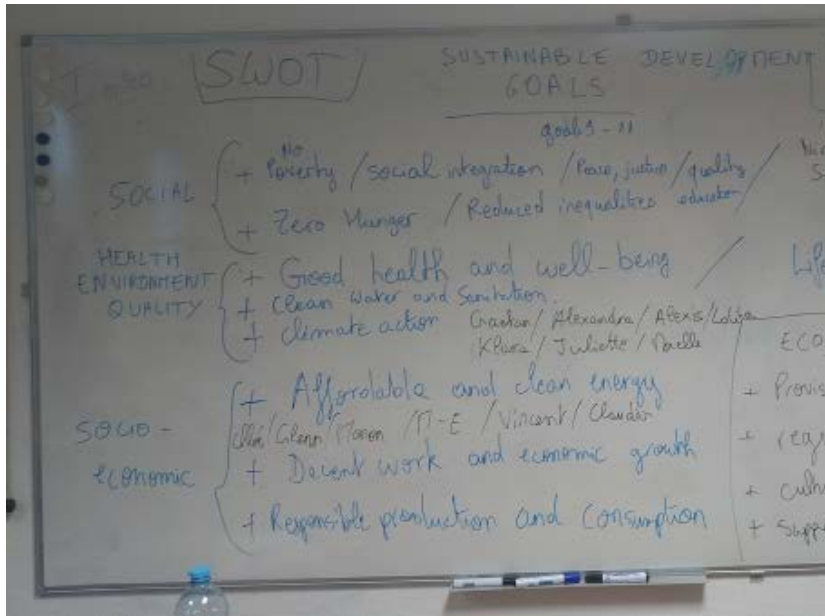 SWOT
SUSTAINABLE DEVELOPMENT
GOALS
goals - 11
SOCIAL
No
+ Poverty / social integration / Peace, justice / quality
education
+ Zero Hunger / Reduced inequalities
HEALTH
ENVIRONMENT
QUALITY
+ Good health and well-being /
+ Clean water and Sanitation.
+ climate action
Gaetan / Alexandra / Alexis /
Klara / Juliette /
SOCIO -
economic
+ Affordable and clean energy
/ Glenn / Manon / M-E / Vincent /
+ Decent work and economic growth
+ Responsible production and consumption
Life
ECO
+ Provis
+ regu
+ cultu
+ supp